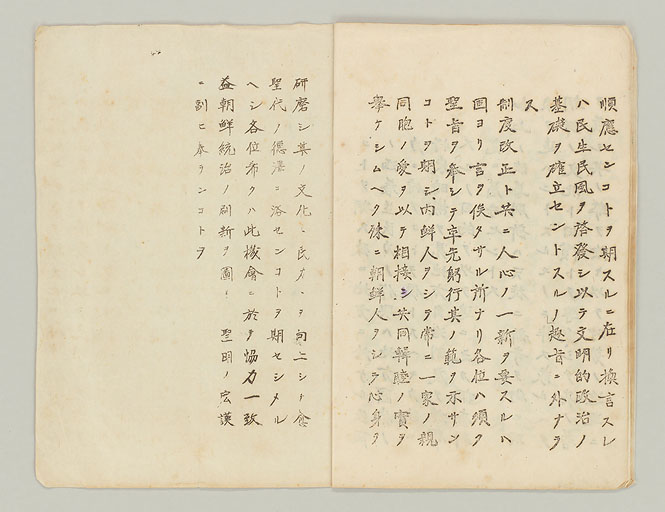 順應センコトヲ期スルニ在リ換言スレ
ハ民生民風ヲ啓發シ以テ文明的政治ノ
基礎ヲ確立セントスルノ趣旨ニ外ナラ
ス
制度改正ト共ニ人心ノ一新ヲ要スルハ
固ヨリ言ヲ俟タサル所ナリ各位ハ須ク
聖旨ヲ奉シテ卒先躬行其ノ範ヲ示サン
コトヲ期シ内鮮人ヲシテ常ニ一家ノ親
同胞ノ愛ヲ以テ相接シ共同輯睦ノ實ヲ
擧ケシムヘク殊ニ朝鮮人ヲシテ心身ヲ
研磨シ其ノ文化ト民力トヲ向上シト
聖代ノ德澤ニ浴センコトヲ期セシメル
ヘシ各位希クハ此機會ニ於テ協力一致
益朝鮮統治ノ刷新ヲ圖リ 聖明ノ宏謨
ニ副ヒ奉ランコトヲ